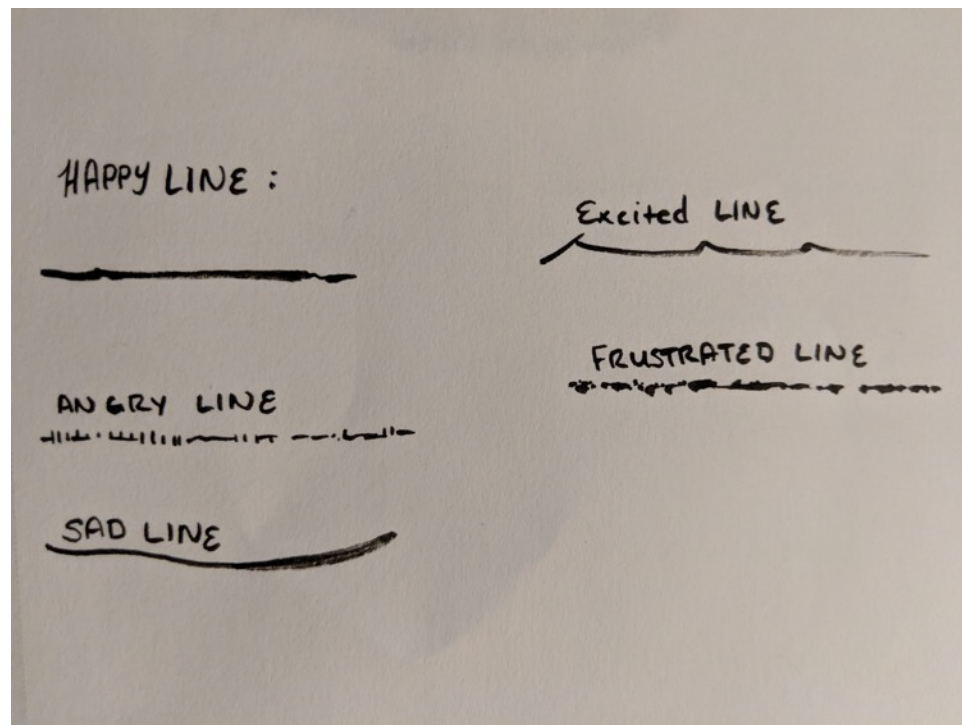 HAPPY LINE :
ANGRY LINE
SAD LINE
Excited LINE
FRUSTRATED LINE